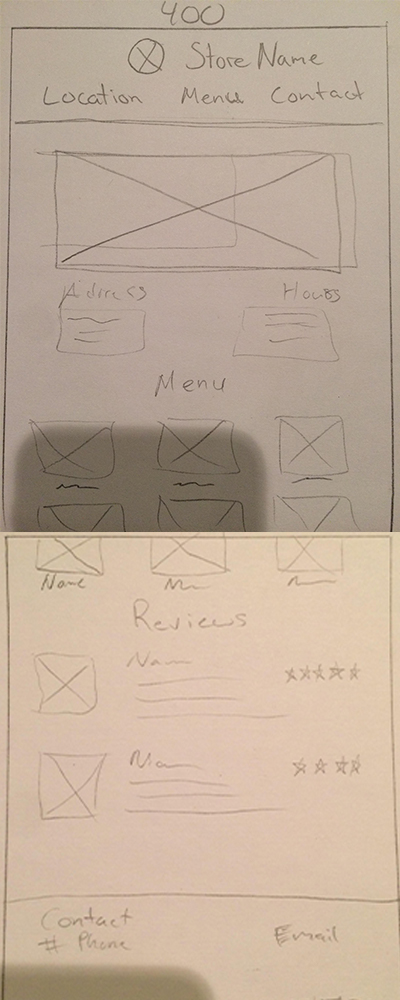 400
Store Name
Location Menu Contact
Address Hours
Menu
Name
Reviews
Name
Contact Email
# Phone